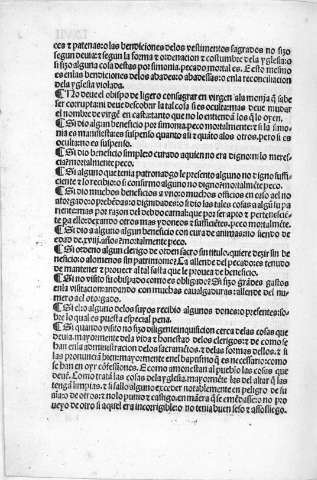 ces ⁊ patenas: o las bendiciones delos vestimentos sagrados no fizo
segun deuia: ⁊ segun la forma ⁊ ordenacion ⁊ costumbre dela yglesia: o
si fizo alguna cosa destas por simonia, pecado mortal es. Esto mesmo
es en las bendiciones delos abades: o abadessas: o en la reconciliacion
dela yglesia violada.
¶ No deue el obispo de ligero consagrar en virgen ala monja q̃ sabe
ser corrupta ni deue descobrir la tal cosa si es oculta: mas deue mudar
el nombre de virgẽ en casta: tanto que no lo entiendã los q̃ lo oyen.
¶ Si dio algun beneficio por simonia peco mortalmente: ⁊ si la simo-
nia es manifesta es suspenso quanto asi ⁊ quãto alos otros. pero si es
oculta: no es suspenso.
¶ Si dio beneficio simple o curado a quien no era digno ni lo meres-
cia: mortalmẽte peco.
¶ Si alguno que tenia patronadgo le presento alguno no digno o sufi-
ciente ⁊ lo recibio: o si confirmo alguno no digno: mortalmẽte peco.
¶ Si dio muchos beneficios a vno: o muchos officios en caso asi no
otorgado: o prebẽdas: o dignidades: o si dio las tales cosas a algũ su pa-
riente: mas por razon del debdo carnal: que por ser apto ⁊ perteneciẽ-
te pa ello: dexando otros mas ydoneos ⁊ suficiẽtes. peco mortalmẽte.
¶ Si dio a alguno algun beneficio con cura de animas: no siendo de
edad de .xviij. años: mortalmente peco.
¶ Si ordeno algun clerigo de orden sacro sin titulo. quiere dezir sin be-
neficio: o alomenos sin patrimonio: ⁊ a allende del pecado es tenudo
de mantener ⁊ proueer al tal fasta que le prouea de beneficio.
¶ Si no visito su obispado como es obligado: ⁊ si fizo grãdes gastos
en la visitacion: andando con muchas caualgaduras: allende del nu-
mero a el otorgado.
¶ Si el: o alguno delos suyos recibio algunos dones: o presentes: so-
bre lo qual es puesta especial pena.
¶ Si quando visito no fizo diligente inquisicion cerca delas cosas que
deuia. mayormente dela vida ⁊ honestad delos clerigos: ⁊ de como se
han en la administracion delos sacramẽtos. ⁊ delas formas dellos. ⁊ si
las pronunciã bien: mayormente en el baptismo q̃ es necessario: como
se han en oyr cõfessiones. E como amonestan al pueblo las cosas que
deuẽ. Como tratã las cosas dela yglesia. mayormẽte las del altar q̃ las
tengã limpias. ⁊ si fallo alguno exceder notablemente en peligro de su
aĩa: o de otros: ⁊ no lo punio ⁊ castigo. en mãera q̃ se emẽdasse: o no pro-
ueyo de otro si aquel era incorrigible: o no tenia buen seso ⁊ assossiego.